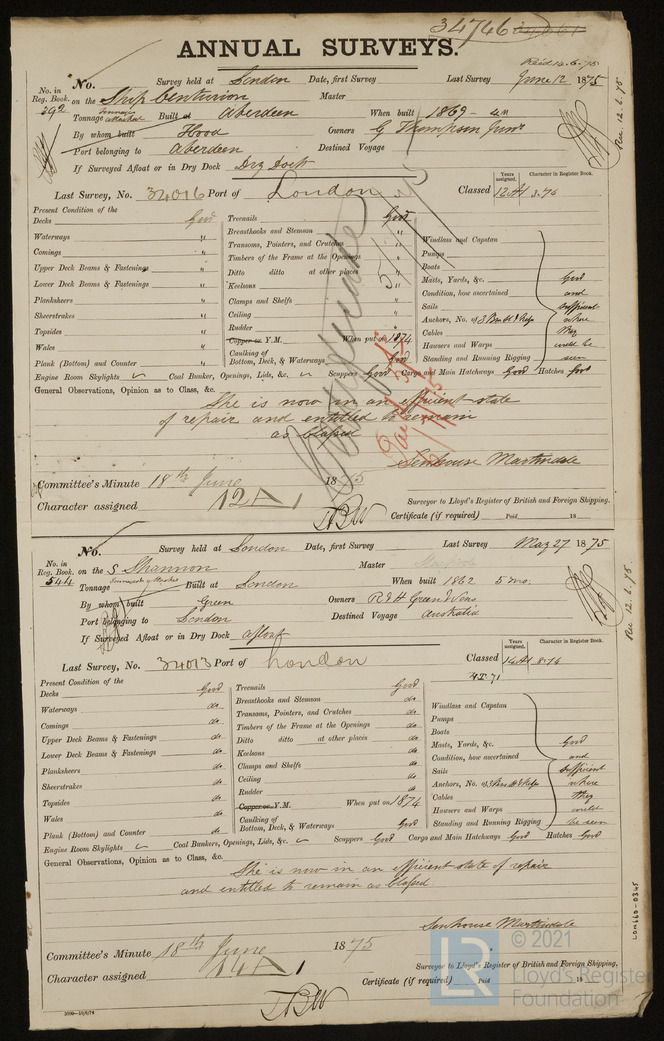 34746
ANNUAL SURVEYS.
No. Survey held at London Date, first Survey Last Survey June 12 1875
No. in Reg. Book. 392 on the Ship Centurion Master
Tonnage Built at Aberdeen When built 1869 - 4m
By whom built Hood Owners G Thompson Junr
Port belonging to Aberdeen Destined Voyage
If Surveyed Afloat or in Dry Dock Dry Dock
Rec 12.6.75
Last Survey, No. 34016 Port of London Classed
Years assigned. 12A1
Character in Register Book. 3.76
Present Condition of the
Decks Good
Waterways "
Comings "
Upper Deck Beams & Fastenings "
Lower Deck Beams & Fastenings "
Planksheers "
Sheerstrakes "
Topsides "
Wales "
Plank (Bottom) and Counter "
Treenails Good
Breasthooks and Stemson "
Transoms, Pointers, and Crutches "
Timbers of the Frame at the Openings "
Ditto ditto at other places "
Keelsons "
Clamps and Shelfs "
Ceiling "
Rudder "
Copper or Y.M. When put on 1874
Caulking of Bottom, Deck, & Waterways Good
Windlass and Capstan
Pumps
Boats
Masts, Yards, &c.
Condition, how ascertained
Sails
Anchors, No. of 3
Cables
Hawsers and Warps
Standing and Running Rigging
Good and sufficient where they could be seen
Engine Room Skylights Coal Bunker, Openings, Lids, &c. Scuppers Good Cargo and Main Hatchways Good Hatches Good
General Observations, Opinion as to Class, &c.
She is now in an efficient state
of repair and entitled to remain
as Classed
Senhouse Martindale
Surveyor to Lloyd's Register of British and Foreign Shipping.
Committee's Minute 18th June 1875
Character assigned 12A1
Certificate (if required) Paid 18
No. Survey held at London Date, first Survey Last Survey May 27 1875
No. in Reg. Book. 544 on the S Shannon Master
Tonnage Built at London When built 1862 5 mo.
By whom built Green Owners R & H Green
Port belonging to London Destined Voyage Australia
If Surveyed Afloat or in Dry Dock afloat
Rec 12.6.75
Last Survey, No. 34013 Port of London Classed
Years assigned. 14A1
Character in Register Book. 8.76
Present Condition of the
Decks Good
Waterways do
Comings do
Upper Deck Beams & Fastenings do
Lower Deck Beams & Fastenings do
Planksheers do
Sheerstrakes do
Topsides do
Wales do
Plank (Bottom) and Counter do
Treenails Good
Breasthooks and Stemson do
Transoms, Pointers, and Crutches do
Timbers of the Frame at the Openings do
Ditto ditto at other places do
Keelsons do
Clamps and Shelfs do
Ceiling do
Rudder do
Copper or Y.M. When put on 1874
Caulking of Bottom, Deck, & Waterways Good
Windlass and Capstan
Pumps
Boats
Masts, Yards, &c.
Condition, how ascertained
Sails
Anchors, No. of 3
Cables
Hawsers and Warps
Standing and Running Rigging
Good and sufficient where they could be seen
Engine Room Skylights Coal Bunkers, Openings, Lids, &c. Scuppers Good Cargo and Main Hatchways Good Hatches Good
General Observations, Opinion as to Class, &c.
She is now in an efficient state of repair
and entitled to remain as Classed
Senhouse Martindale
Surveyor to Lloyd's Register of British and Foreign Shipping.
Committee's Minute 18th June 1875
Character assigned 14A1
Certificate (if required) Paid 18
LON660-0345
© 2021
Lloyd's Register
Foundation
LR